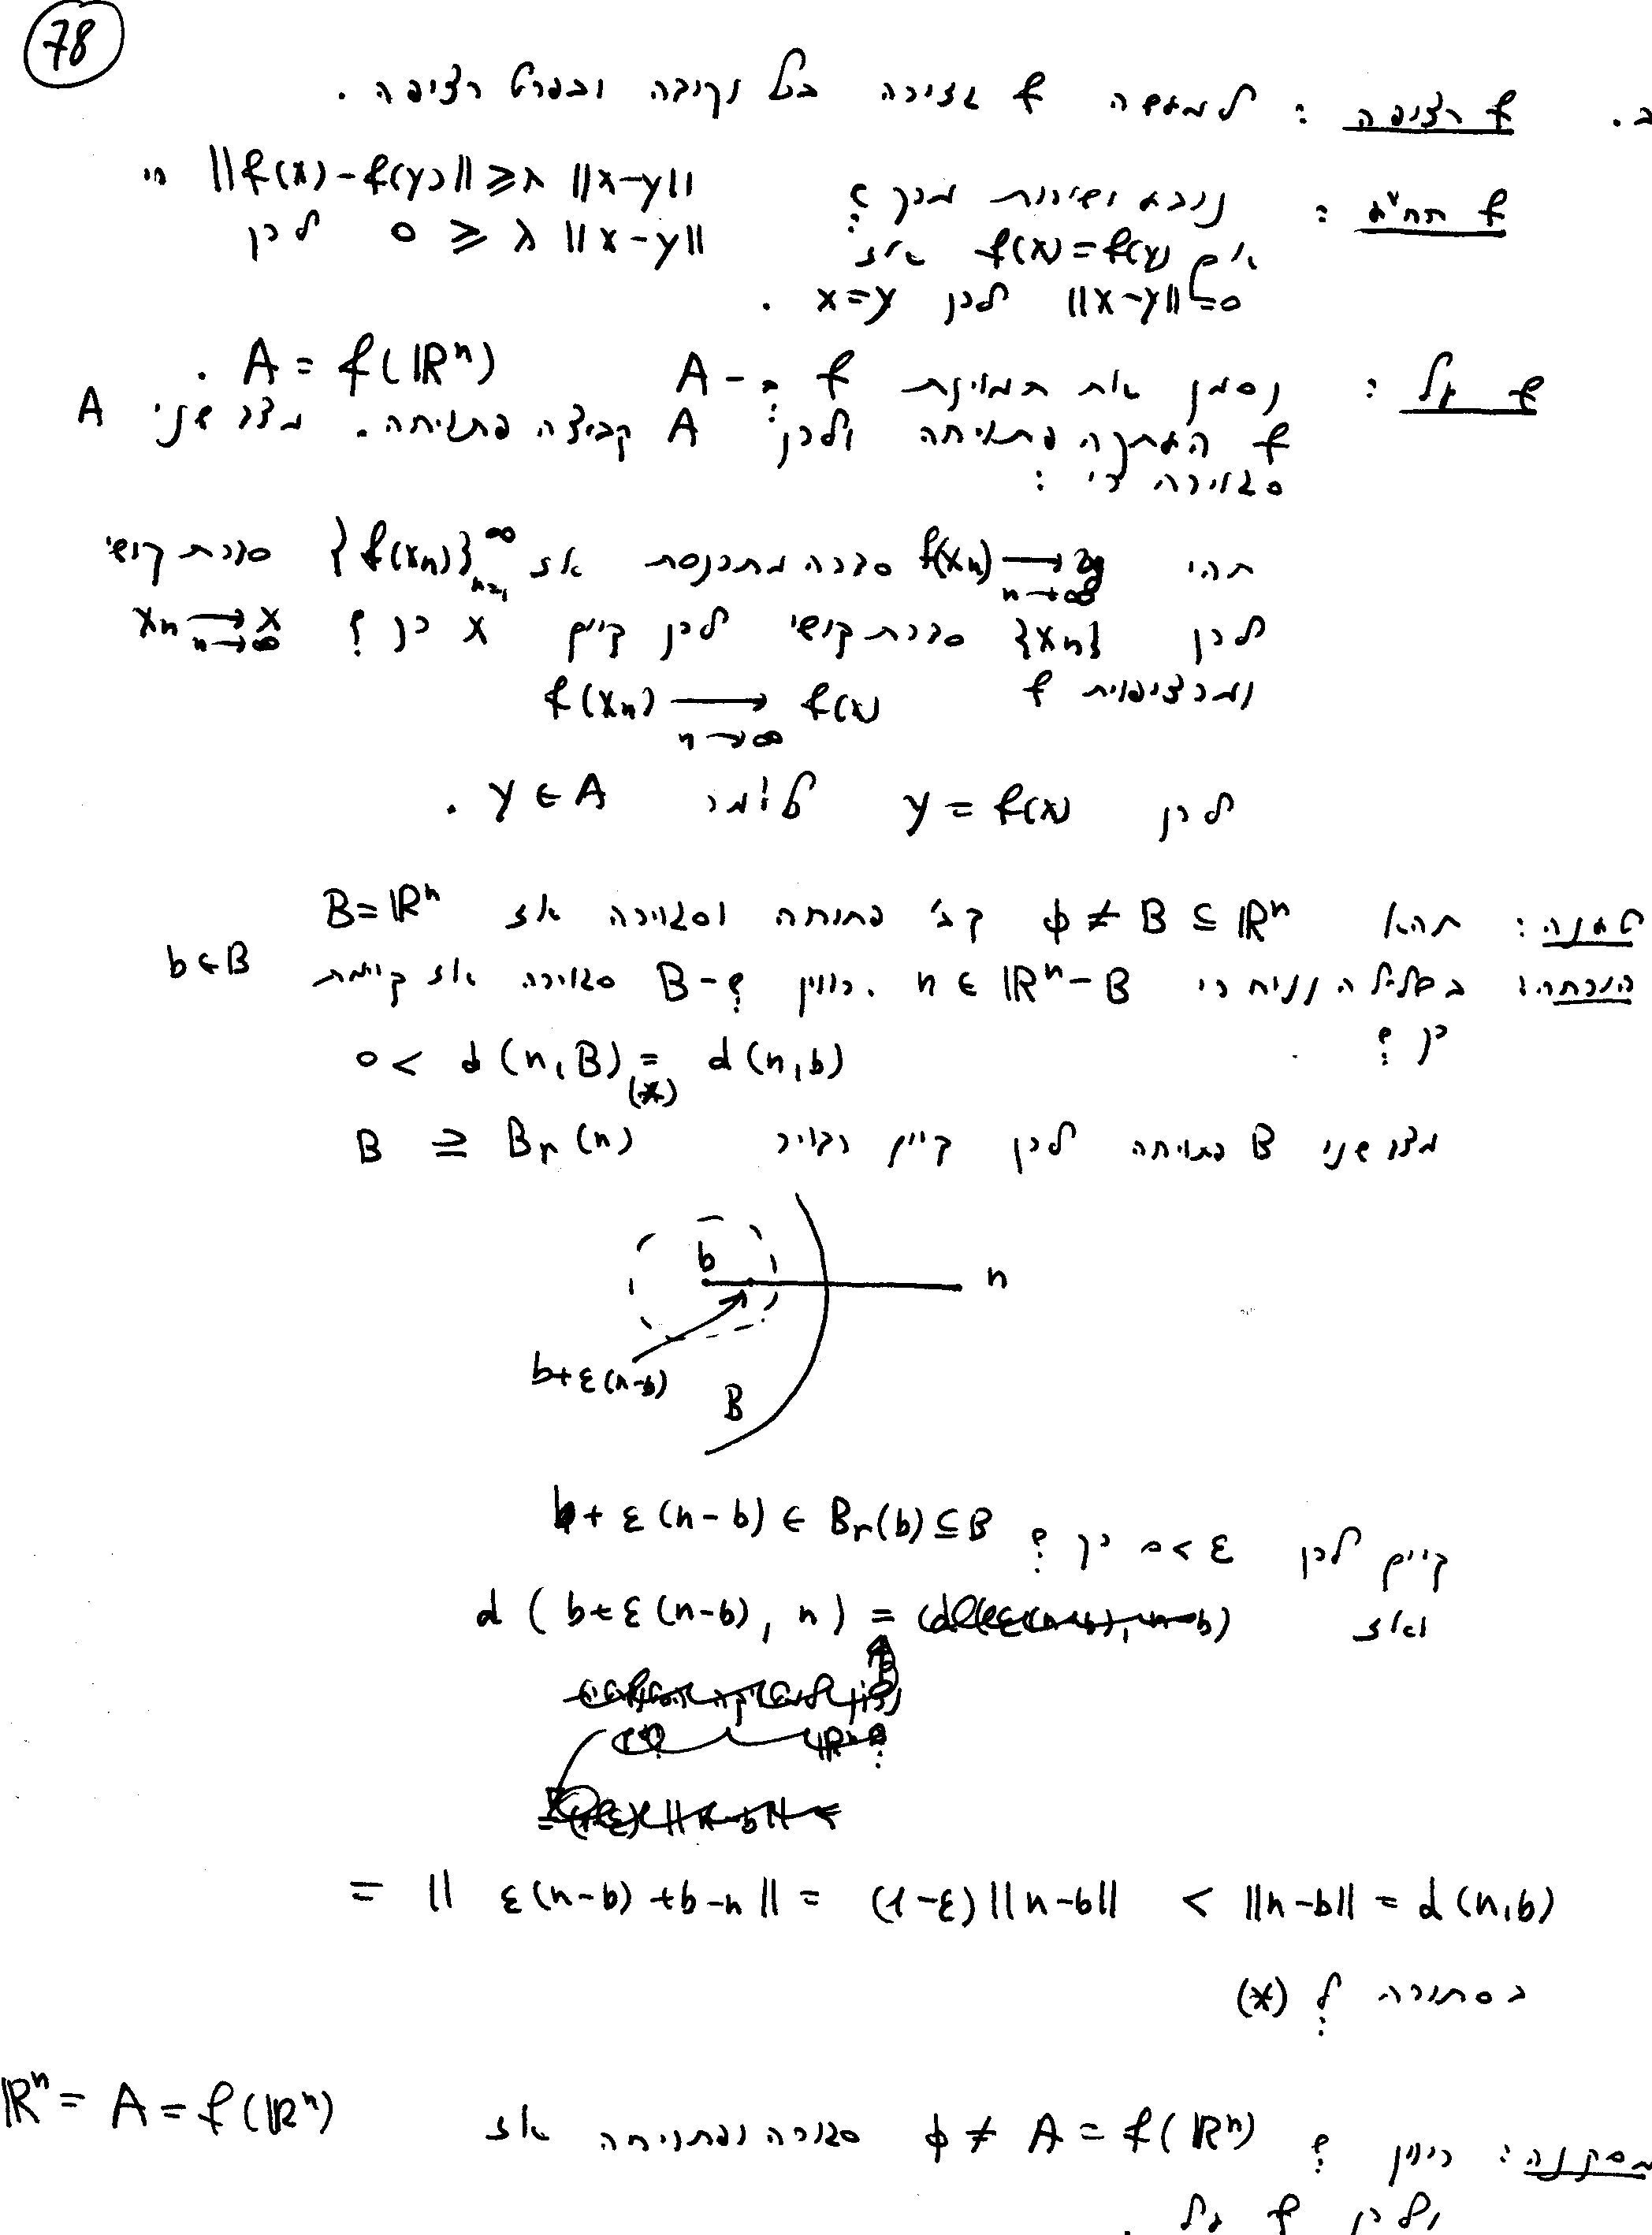 78
ב. f רציפה : למעשה f גזירה בכל נקודה ובפרט רציפה.
f חח"ע : נובע ישירות מכך ש ‖f(x)-f(y)‖ ≥ λ‖x-y‖ כי
אם f(x)=f(y) אז 0 ≥ λ‖x-y‖ לכן
‖x-y‖=0 לכן x=y .
f על : נסמן את תמונת f ב-A A = f(ℝⁿ) .
f העתקה פתוחה ולכן A קבוצה פתוחה. מצד שני A
סגורה כי :
תהי f(xₙ) ⟶ y n→∞ סדרה מתכנסת אז {f(xₙ)}∞ n=1 סדרת קושי
לכן {xₙ} סדרת קושי לכן קיים x כך ש xₙ ⟶ x n→∞
ומרציפות f f(xₙ) ⟶ f(x) n→∞
לכן y = f(x) כלומר y ∈ A .
טענה : תהא ϕ ≠ B ⊆ ℝⁿ קב' פתוחה וסגורה אז B=ℝⁿ
הוכחה : בשלילה נניח כי n ∈ ℝⁿ-B . כיוון ש-B סגורה אז קיימת b∈B
כך ש
0 < d(n,B) = d(n,b) (*)
מצד שני B פתוחה לכן קיים כדור B ⊇ Bᵣ(n)
b
n
b+ε(n-b)
B
קיים לכן ε>0 כך ש b+ε(n-b) ∈ Bᵣ(b) ⊆ B
ואז d(b+ε(n-b), n) =
= ‖ε(n-b)+b-n‖ = (1-ε)‖n-b‖ < ‖n-b‖ = d(n,b)
בסתירה ל (*)
מסקנה : כיוון ש ϕ ≠ A = f(ℝⁿ) סגורה ופתוחה אז ℝⁿ = A = f(ℝⁿ)
ולכן f על .